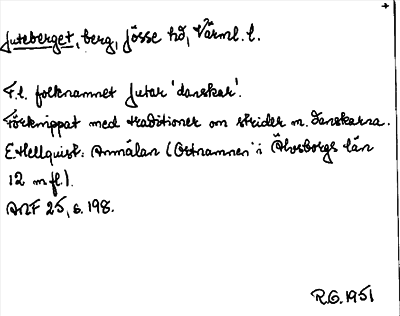 Juteberget, berg, Jösse hd, Värml. l.
F.l. folknamnet Jutar 'danskar'.
Förknippat med traditioner om strider m. danskarna.
E. Hellquist: Anmälan (Ortnamnen i Älvsborgs län
12 m fl.).
ANF 25, s. 198.
R.G. 1951